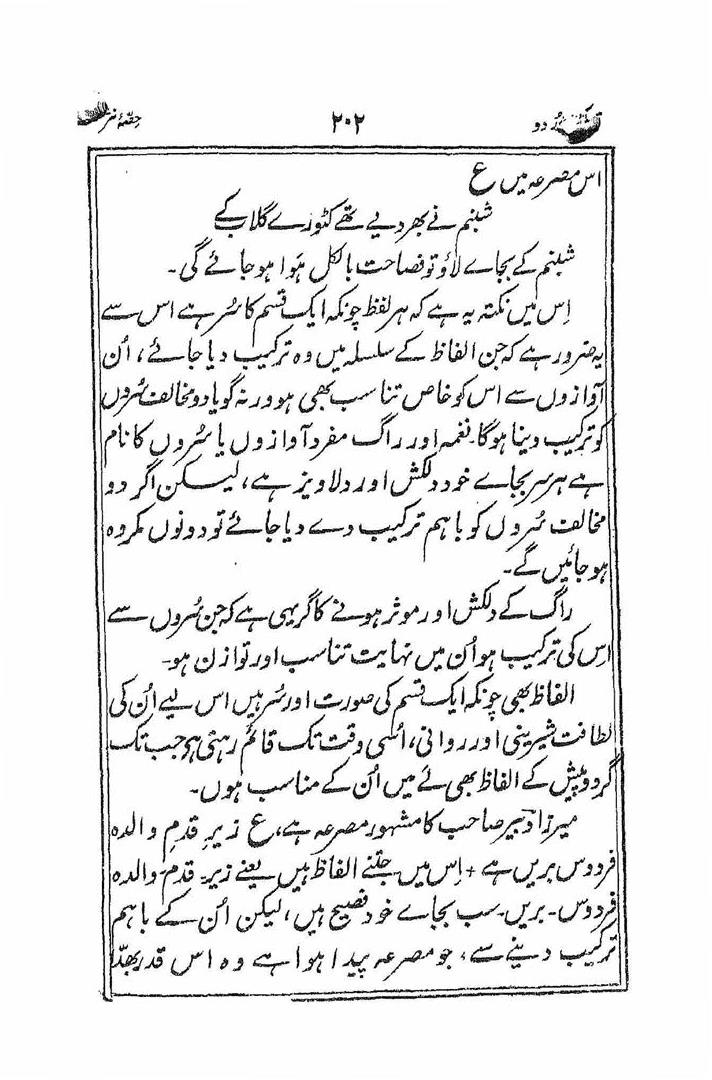 دو ۲۰۲ حصّۂ نثر
اس مصرعہ میں ع
شبنم نے بھر دیے تھے کٹورے گلاب کے
شبنم کے بجاے لاؤ تو فصاحت بالکل ہَوا ہو جائے گی۔
اِس میں نکتہ یہ ہے کہ ہر لفظ چونکہ ایک قسم کا سُر ہے اس سے
یہ ضرور ہے کہ جن الفاظ کے سلسلہ میں وہ ترکیب دیا جائے، اُن
آوازوں سے اس کو خاص تناسب بھی ہو ورنہ گویا دو مخالف سُروں
کو ترکیب دینا ہوگا۔ نغمہ اور راگ مفرد آوازوں یا سُروں کا نام
ہے ہر سر بجاے خود دلکش اور دلاویز ہے، لیکن اگر دو
مخالف سُروں کو باہم ترکیب دے دیا جائے تو دونوں مکروہ
ہو جائیں گے۔
راگ کے دلکش اور موثر ہونے کا گر یہی ہے کہ جن سُروں سے
اِس کی ترکیب ہو اُن میں نہایت تناسب اور توازن ہو۔
الفاظ بھی چونکہ ایک قسم کی صورت اور سُر ہیں اس لیے اُن کی
لطافت شیرینی اور روانی، اُسی وقت تک قائم رہتی ہے جب تک
گردوپیش کے الفاظ بھی لے میں اُن کے مناسب ہوں۔
میرزا دبیر صاحب کا مشہور مصرعہ ہے، ع زیرِ قدمِ والدہ
فردوس بریں ہے + اِس میں جتنے الفاظ ہیں یعنے زیر۔ قدم۔ والدہ
فردوس۔ بریں۔ سب بجاے خود فصیح ہیں، لیکن اُن کے باہم
ترکیب دینے سے، جو مصرعہ پیدا ہوا ہے وہ اس قدر بھدّا